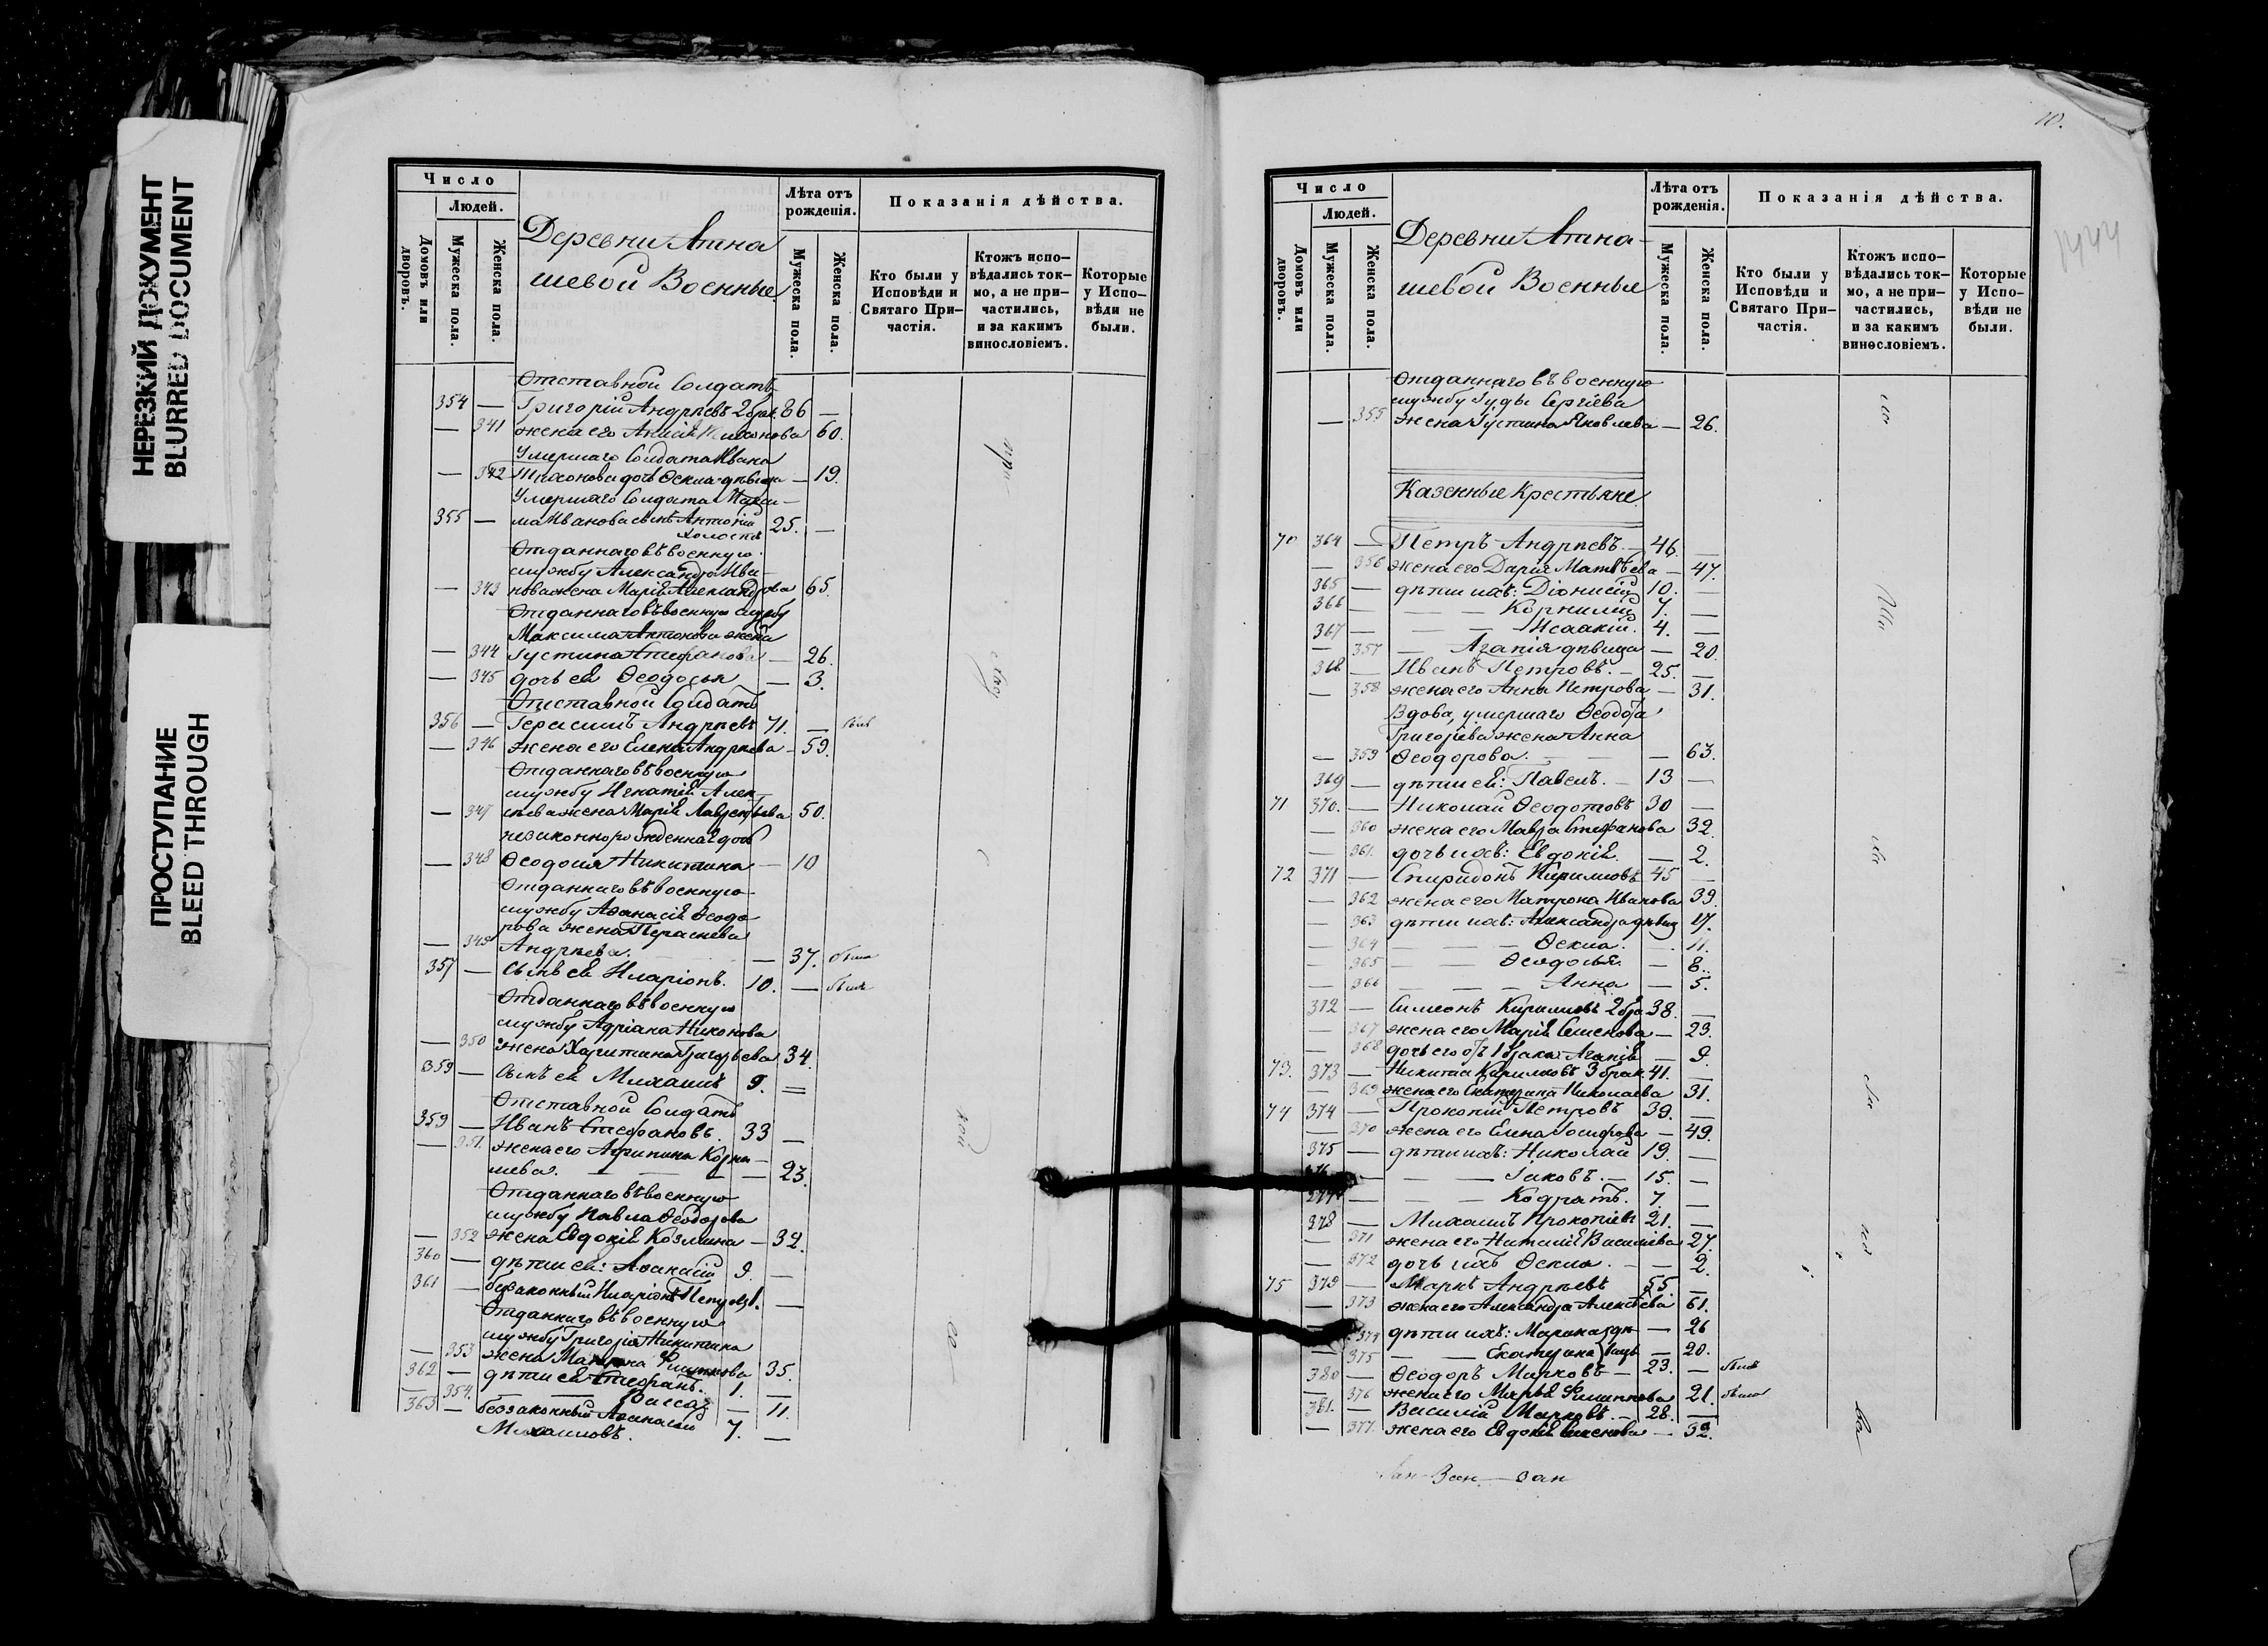 НЕРЕЗКИЙ ДОКУМЕНТ
BLURRED DOCUMENT
ПРОСТУПАНИЕ
BLEED THROUGH
Число
Людей.
Домовъ или дворовъ.
Мужеска пола.
Женска пола.
Деревни Атана
шевой Военные
Лѣта отъ рожденія.
Мужеска пола.
Женска пола.
Показанія дѣйства.
Кто были у Исповѣди и Святаго Причастія.
Ктожъ исповѣдались токмо, а не причастились, и за какимъ винословіемъ.
Которые у Исповѣди не были.
Отставной Солдатъ
354 — Григорій Андреевъ 2 брак 86 —
— 341 жена его Анисія Тихонова 60.
Умершаго Солдата Ивана
— 342 Тихонова дочь Ѳекла девица — 19.
Умершаго Солдата Макси-
355 — ма Иванова сынъ Антоній 25. —
холостъ
Отданнаго въ военную
службу Александра Ива-
— 343 нова жена Марія Александрова 65.
Отданнаго въ военную службу
Максима Антонова жена
— 344 Іустина Стефанова — 26.
— 345 дочь ея Ѳеодосья — 3.
Отставной Солдатъ
356 — Герасимъ Андреевъ 71. — былъ
— 346 жена его Елена Андреева — 59.
Отданнаго въ военную
службу Игнатія Алек-
— 347 сеева жена Марія Лаврентьева 50.
незаконнорожденная дочь
— 348 Ѳеодосія Никитина — 10
Отданнаго въ военную
службу Аѳанасія Ѳеодо
рова жена Парасковья
— 349 Андреева. — 37. была
357 — Сынъ ея Иларіонъ. 10. — былъ
Отданнаго въ военную
службу Адріана Никонова
— 350 жена Харитина Григорьева 34.
359 — Сынъ ея Михаилъ 9. —
Отставной Солдатъ
359 — Иванъ Стефановъ. 33 —
— 351. жена его Агрипина Корни-
лева. — — 23.
Отданнаго въ военную
службу Павла Ѳеодорова
— 352 жена Евдокія Козмина — 32.
360 — дети ея: Аѳанасій 9. —
361 — беззаконный Иларіонъ 1. —
Отданнаго въ военную
службу Григорія Никитина
— 353 жена Матрона Филипова 35.
362 — дети ея: Стефанъ. 1. —
— 354. — 11.
363 — беззаконный Аѳанасій
Михаиловъ. 7. —
10.
Число
Людей.
Домовъ или дворовъ.
Мужеска пола.
Женска пола.
Деревни Атана-
шевой Военные
Лѣта отъ рожденія.
Мужеска пола.
Женска пола.
Показанія дѣйства.
Кто были у Исповѣди и Святаго Причастія.
Ктожъ исповѣдались токмо, а не причастились, и за какимъ винословіемъ.
Которые у Исповѣди не были.
Отданнаго въ военную
службу Іуды Сергіева
— 355 жена Іустина Яковлева — 26.
Казенные Крестьяне
70 364 — Петръ Андреевъ. — 46. —
— 356 жена его Дарія Матвѣева — 47.
365 — дети ихъ: Діонисій 10. —
366 — — — Корнилій 7. —
367 — — — Исаакій. 4. —
— 357 — Агапія девица — 20.
368 — Иванъ Петровъ. — 25. —
— 358 жена его Анна Петрова — 31.
Вдова, умершаго Ѳеодота
Григорьева жена Анна
— 359 Ѳеодорова. — — 63.
369 — дети ея: Павелъ. — 13 —
71 370. — Николай Ѳеодотовъ 30 —
— 360 жена его Мавра Стефанова 32.
— 361. дочь ихъ: Евдокія. — 2.
72 371 — Спиридонъ Кириловъ 45 —
— 362 жена его Матрона Иванова 39.
— 363 дети ихъ: Александра девиц 17.
— 364 — — — Ѳекла. — 11.
— 365 — — Ѳеодосья. — 8.
— 366 — — — Анна — 5.
372 — Симеонъ Кириловъ 2 бра 38. —
— 367 жена его Марія Семенова — 23.
— 368 дочь его отъ 1 брака: Агапія — 9.
73. 373 — Никита Кириловъ 3 брак. 41. —
— 369 жена его Екатерина Николаева 31.
74 374 — Прокопій Петровъ 39. —
— 370 жена его Елена Іосифова — 49.
375 — дети ихъ: Николай 19. —
376 — — — Іаковъ. — 15. —
377 — — — Кодратъ. 7. —
378 — Михаилъ Прокопіевъ 21. —
— 371 жена его Наталія Василіева 27.
— 372 дочь ихъ Ѳекла. — 2.
75 379 — Маркъ Андреевъ 55 —
— 373 жена его Александра Алексѣева 61.
— 374 дети ихъ: Марина де — 26
— 375 — — Екатерина вицы — 20.
380 — Ѳеодоръ Марковъ — 23. — былъ
— 376 жена его Марья Филиппова 21. была
381. — Василій Марковъ. — 28. —
— 377. жена его Евдокія Симеонова — 32.